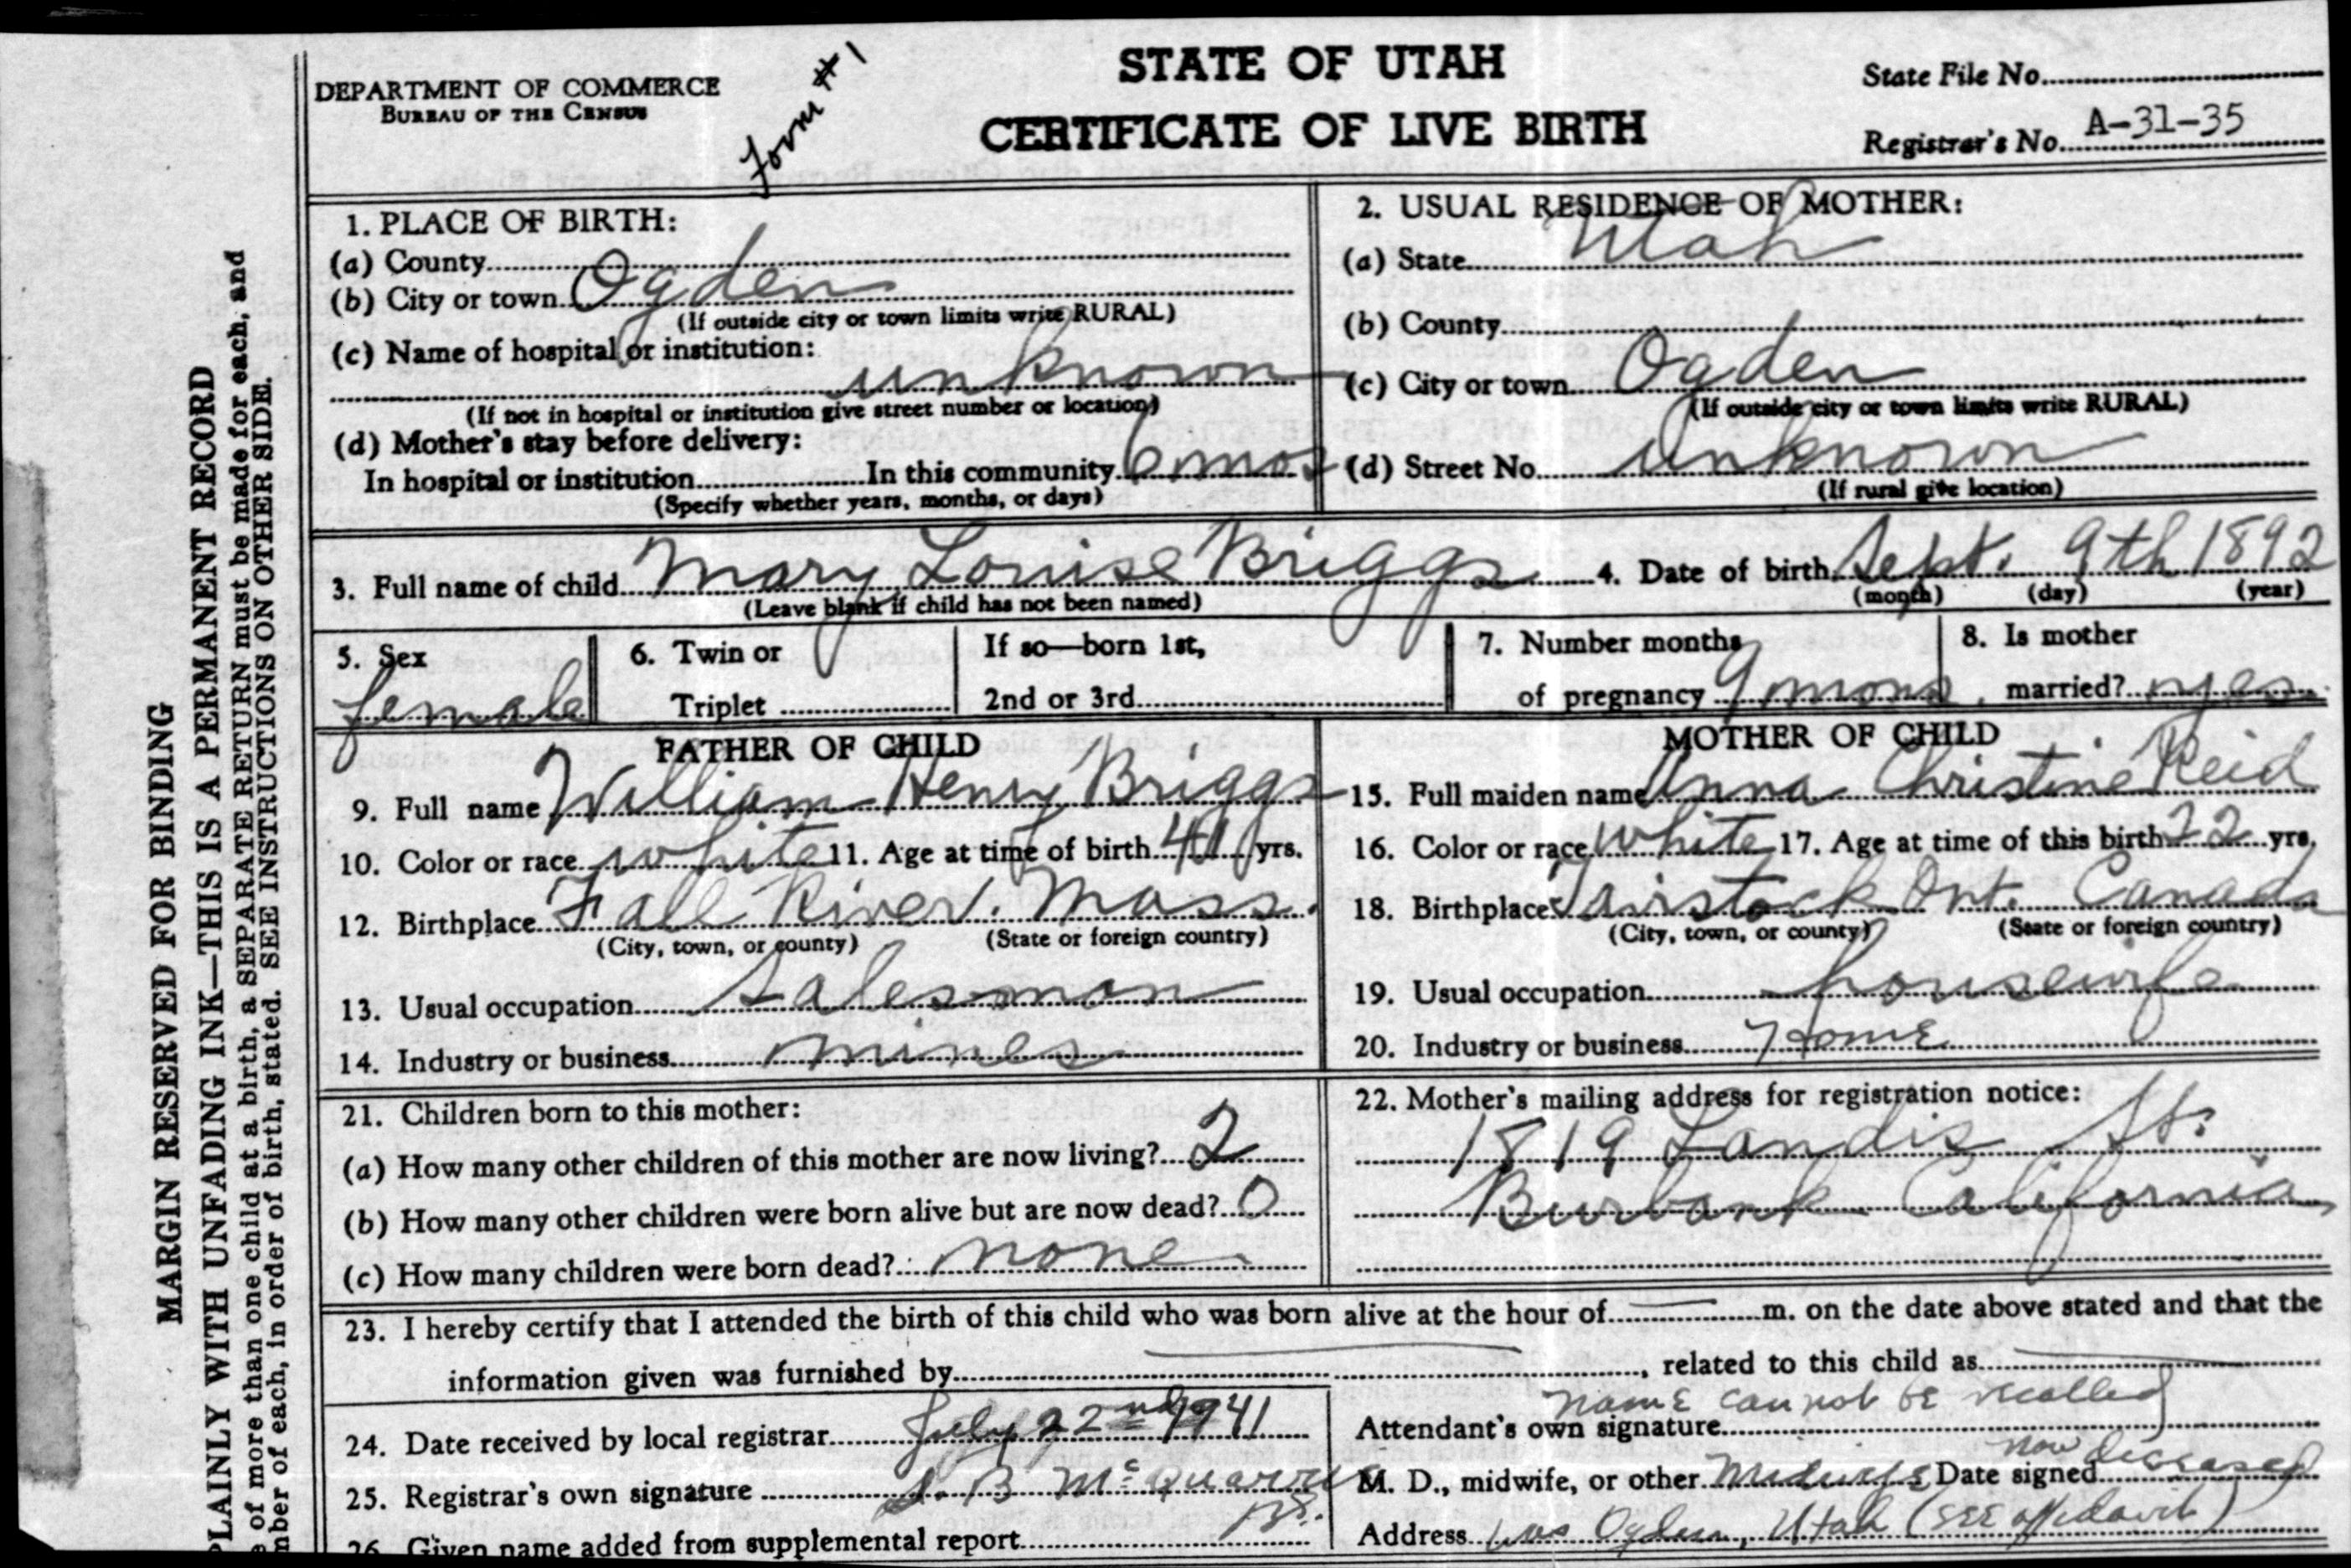 DEPARTMENT OF COMMERCE
BUREAU OF THE CENSUS
Form #1
STATE OF UTAH
CERTIFICATE OF LIVE BIRTH
State File No.
Registrar's No. A-31-35
1. PLACE OF BIRTH:
(a) County
(b) City or town Ogden
(If outside city or town limits write RURAL)
(c) Name of hospital or institution:
unknown
(If not in hospital or institution give street number or location)
(d) Mother's stay before delivery:
In hospital or institution In this community 6 mos
(Specify whether years, months, or days)
2. USUAL RESIDENCE OF MOTHER:
(a) State Utah
(b) County
(c) City or town Ogden
(If outside city or town limits write RURAL)
(d) Street No. Unknown
(If rural give location)
3. Full name of child Mary Louise Briggs 4. Date of birth Sept. 9th 1892
(Leave blank if child has not been named) (month) (day) (year)
5. Sex
female
6. Twin or
Triplet
If so—born 1st,
2nd or 3rd
7. Number months
of pregnancy 9 mons
8. Is mother
married? yes
FATHER OF CHILD
9. Full name William Henry Briggs
10. Color or race white 11. Age at time of birth 41 yrs.
12. Birthplace Fall River. Mass.
(City, town, or county) (State or foreign country)
13. Usual occupation Salesman
14. Industry or business mines
MOTHER OF CHILD
15. Full maiden name Anna Christine Reid
16. Color or race White 17. Age at time of this birth 22 yrs.
18. Birthplace Tavistock Ont. Canada
(City, town, or county) (State or foreign country)
19. Usual occupation housewife
20. Industry or business Home
21. Children born to this mother:
(a) How many other children of this mother are now living? 2
(b) How many other children were born alive but are now dead? 0
(c) How many children were born dead? none
22. Mother's mailing address for registration notice:
1819 Landis St.
Burbank California
23. I hereby certify that I attended the birth of this child who was born alive at the hour of m. on the date above stated and that the
information given was furnished by , related to this child as
24. Date received by local registrar July 22nd 1941
25. Registrar's own signature B McQuarrie
26. Given name added from supplemental report
Name cannot be recalled
Attendant's own signature
now deceased
M. D., midwife, or other Midwife Date signed
Address was Ogden, Utah (see affidavit)
MARGIN RESERVED FOR BINDING
PLAINLY WITH UNFADING INK—THIS IS A PERMANENT RECORD
of more than one child at a birth, a SEPARATE RETURN must be made for each, and
number of each, in order of birth, stated. SEE INSTRUCTIONS ON OTHER SIDE.